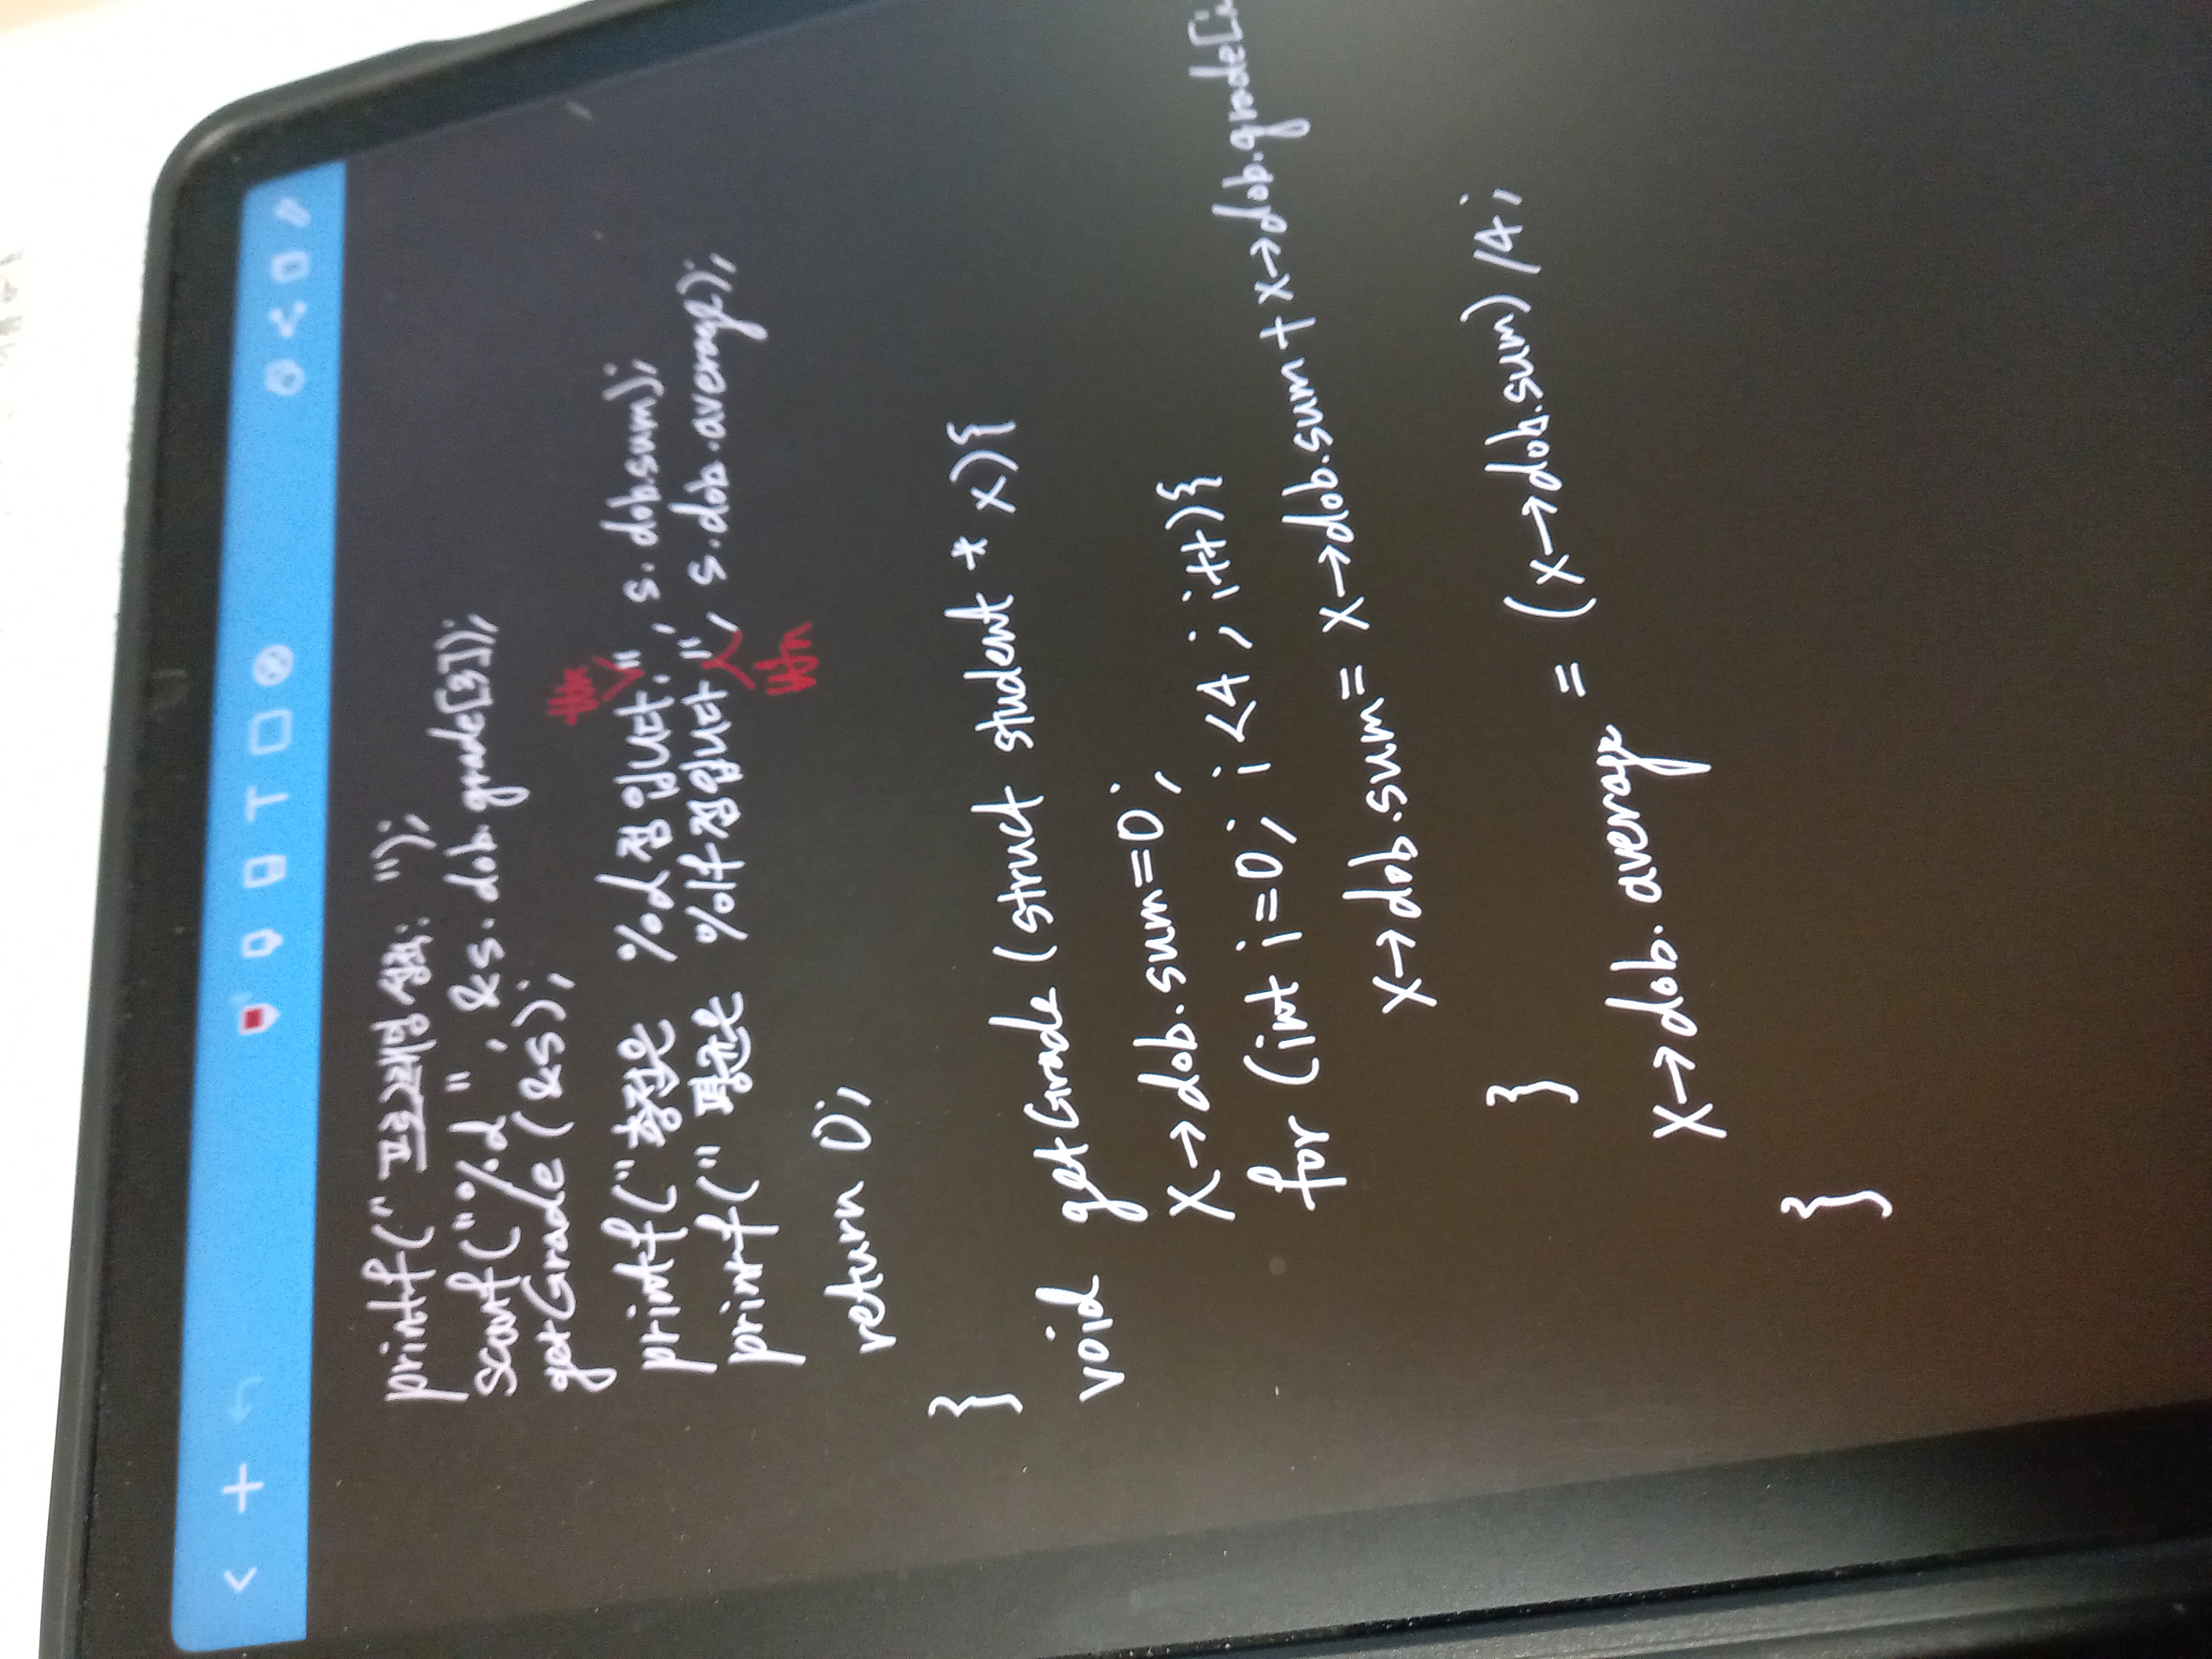 printf(" 프로그래밍 성적: ");
scanf("%d", &s.dob.grade[3]);
getGrade (&s);
₩n
printf("총점은 %d점 입니다.", s.dob.sum);
printf(" 평균은 %lf점입니다.", s.dob.average);
₩n
return 0;
}
void getGrade (struct student * x){
x→dob.sum=0;
for (int i=0; i<4; i++){
x→dob.sum= x→dob.sum+x→dob.grade[i
}
x→dob.average = (x→dob.sum)/4;
}